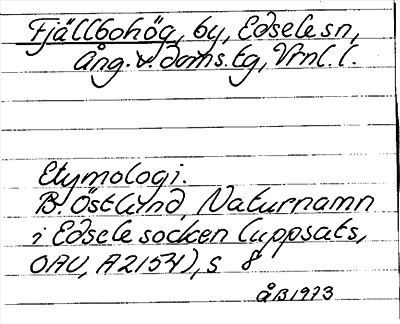 Fjällbohög, by, Edsele sn,
Ång. v. doms. tg, Vrnl. l.
Etymologi.
B. Östlund, Naturnamn
i Edsele socken (uppsats,
OAU, A2154), s 8
åB1973